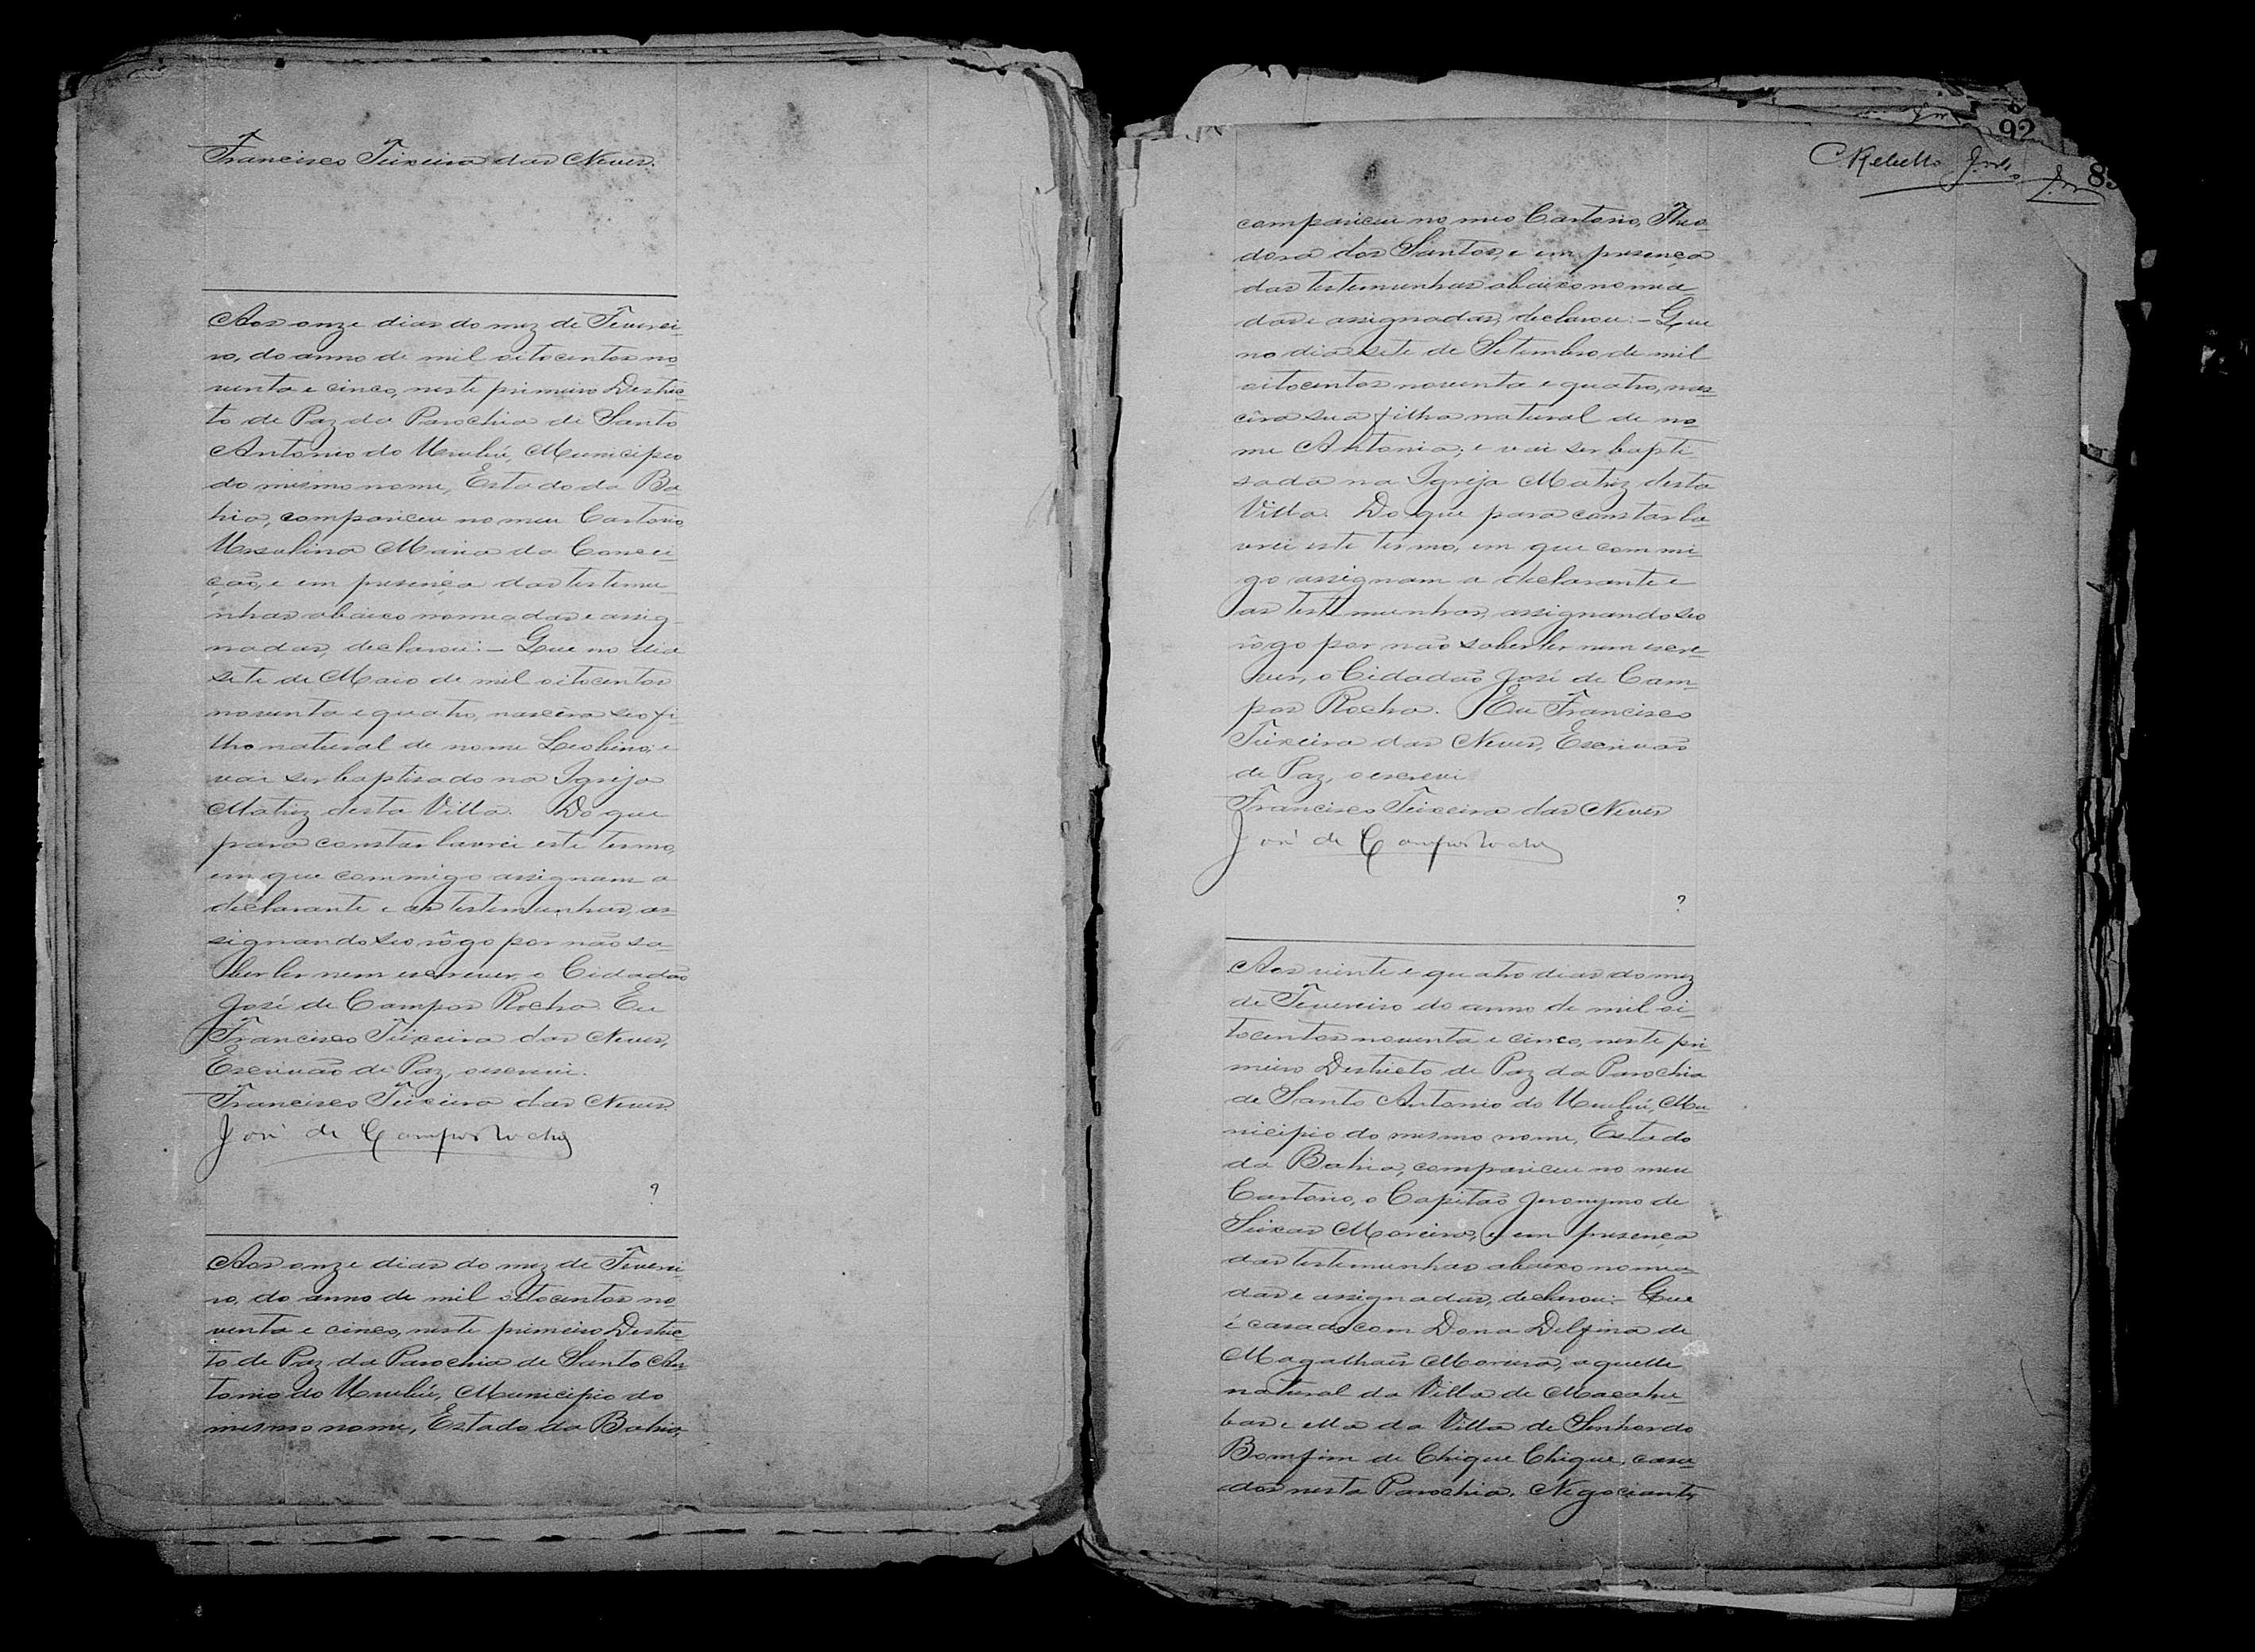 Francisco Teixeira das Neves.
Aos onze dias do mez de Feverei-
ro, do anno de mil oitocentos no
venta e cinco, neste primeiro Destric-
to de Paz da Parochia de Santo
Antonio do Urubú, Municipio
do mesmo nome, Estado da Ba-
hia, compareceu no meu Cartorio
Ursulina Maria da Concei-
ção, e em presença das testemu-
nhas abaixo nomeadas e assig-
nadas, declarou: - Que no dia
sete de Maio de mil oitocentos
noventa e quatro, nascêra seo fi-
lho natural de nome Leolino; e
vai ser baptisado na Igreja
Matriz desta Villa. Do que
para constar lavrei este termo,
em que commigo assignam a
declarante e as testemunhas, as-
signando seo rôgo por não sa-
ber ler nem escrever, o Cidadão
José de Campos Rocha. Eu
Francisco Teixeira das Neves,
Escrivão de Paz, o escrevi.
Francisco Teixeira das Neves.
José de Campos Rocha
?
Aos onze dias do mez de Feverei-
ro, do anno de mil oitocentos no
venta e cinco, neste primeiro Destric-
to de Paz da Parochia de Santo An
tonio do Urubú, Municipio do
mesmo nome, Estado da Bahia,
92
C Rebello
8
compareceu no meo Cartorio, Theo-
dora dos Santos, e em presença
das testemunhas abaixo nomea-
das e assignadas, declarou: - Que
no dia sete de Setembro de mil
oitocentos noventa e quatro, nas-
cêra sua filha natural de no-
me Antonia; e vai ser bapti-
sada na Igreja Matriz desta
Villa. Do que para constar la-
vrei este termo, em que commi-
go assignam a declarante e
as testemunhas, assignando seo
rôgo por não saber ler nem escre-
ver, o Cidadão José de Cam-
pos Rocha. Eu Francisco
Teixeira das Neves, Escrivão
de Paz, o escrevi
Francisco Teixeira das Neves
José de Campos Rocha
?
Aos vinte e quatro dias do mez
de Fevereiro do anno de mil oi-
tocentos noventa e cinco, neste pri-
meiro Destricto de Paz da Parochia
de Santo Antonio do Urubú, Mu-
nicipio do mesmo nome, Estado
da Bahia, compareceu no meu
Cartorio, o Capitão Jeronymo de
Seixas Moreira, e em presença
das testemunhas abaixo nomea-
das e assignadas, declarou: - Que
é casado com Dona Delfina de
Magalhães Moreira, aquelle
natural da Villa de Macahu-
bas e ella da Villa de Senhor do
Bomfim de Chique Chique, casa-
dos nesta Parochia, Negociante,